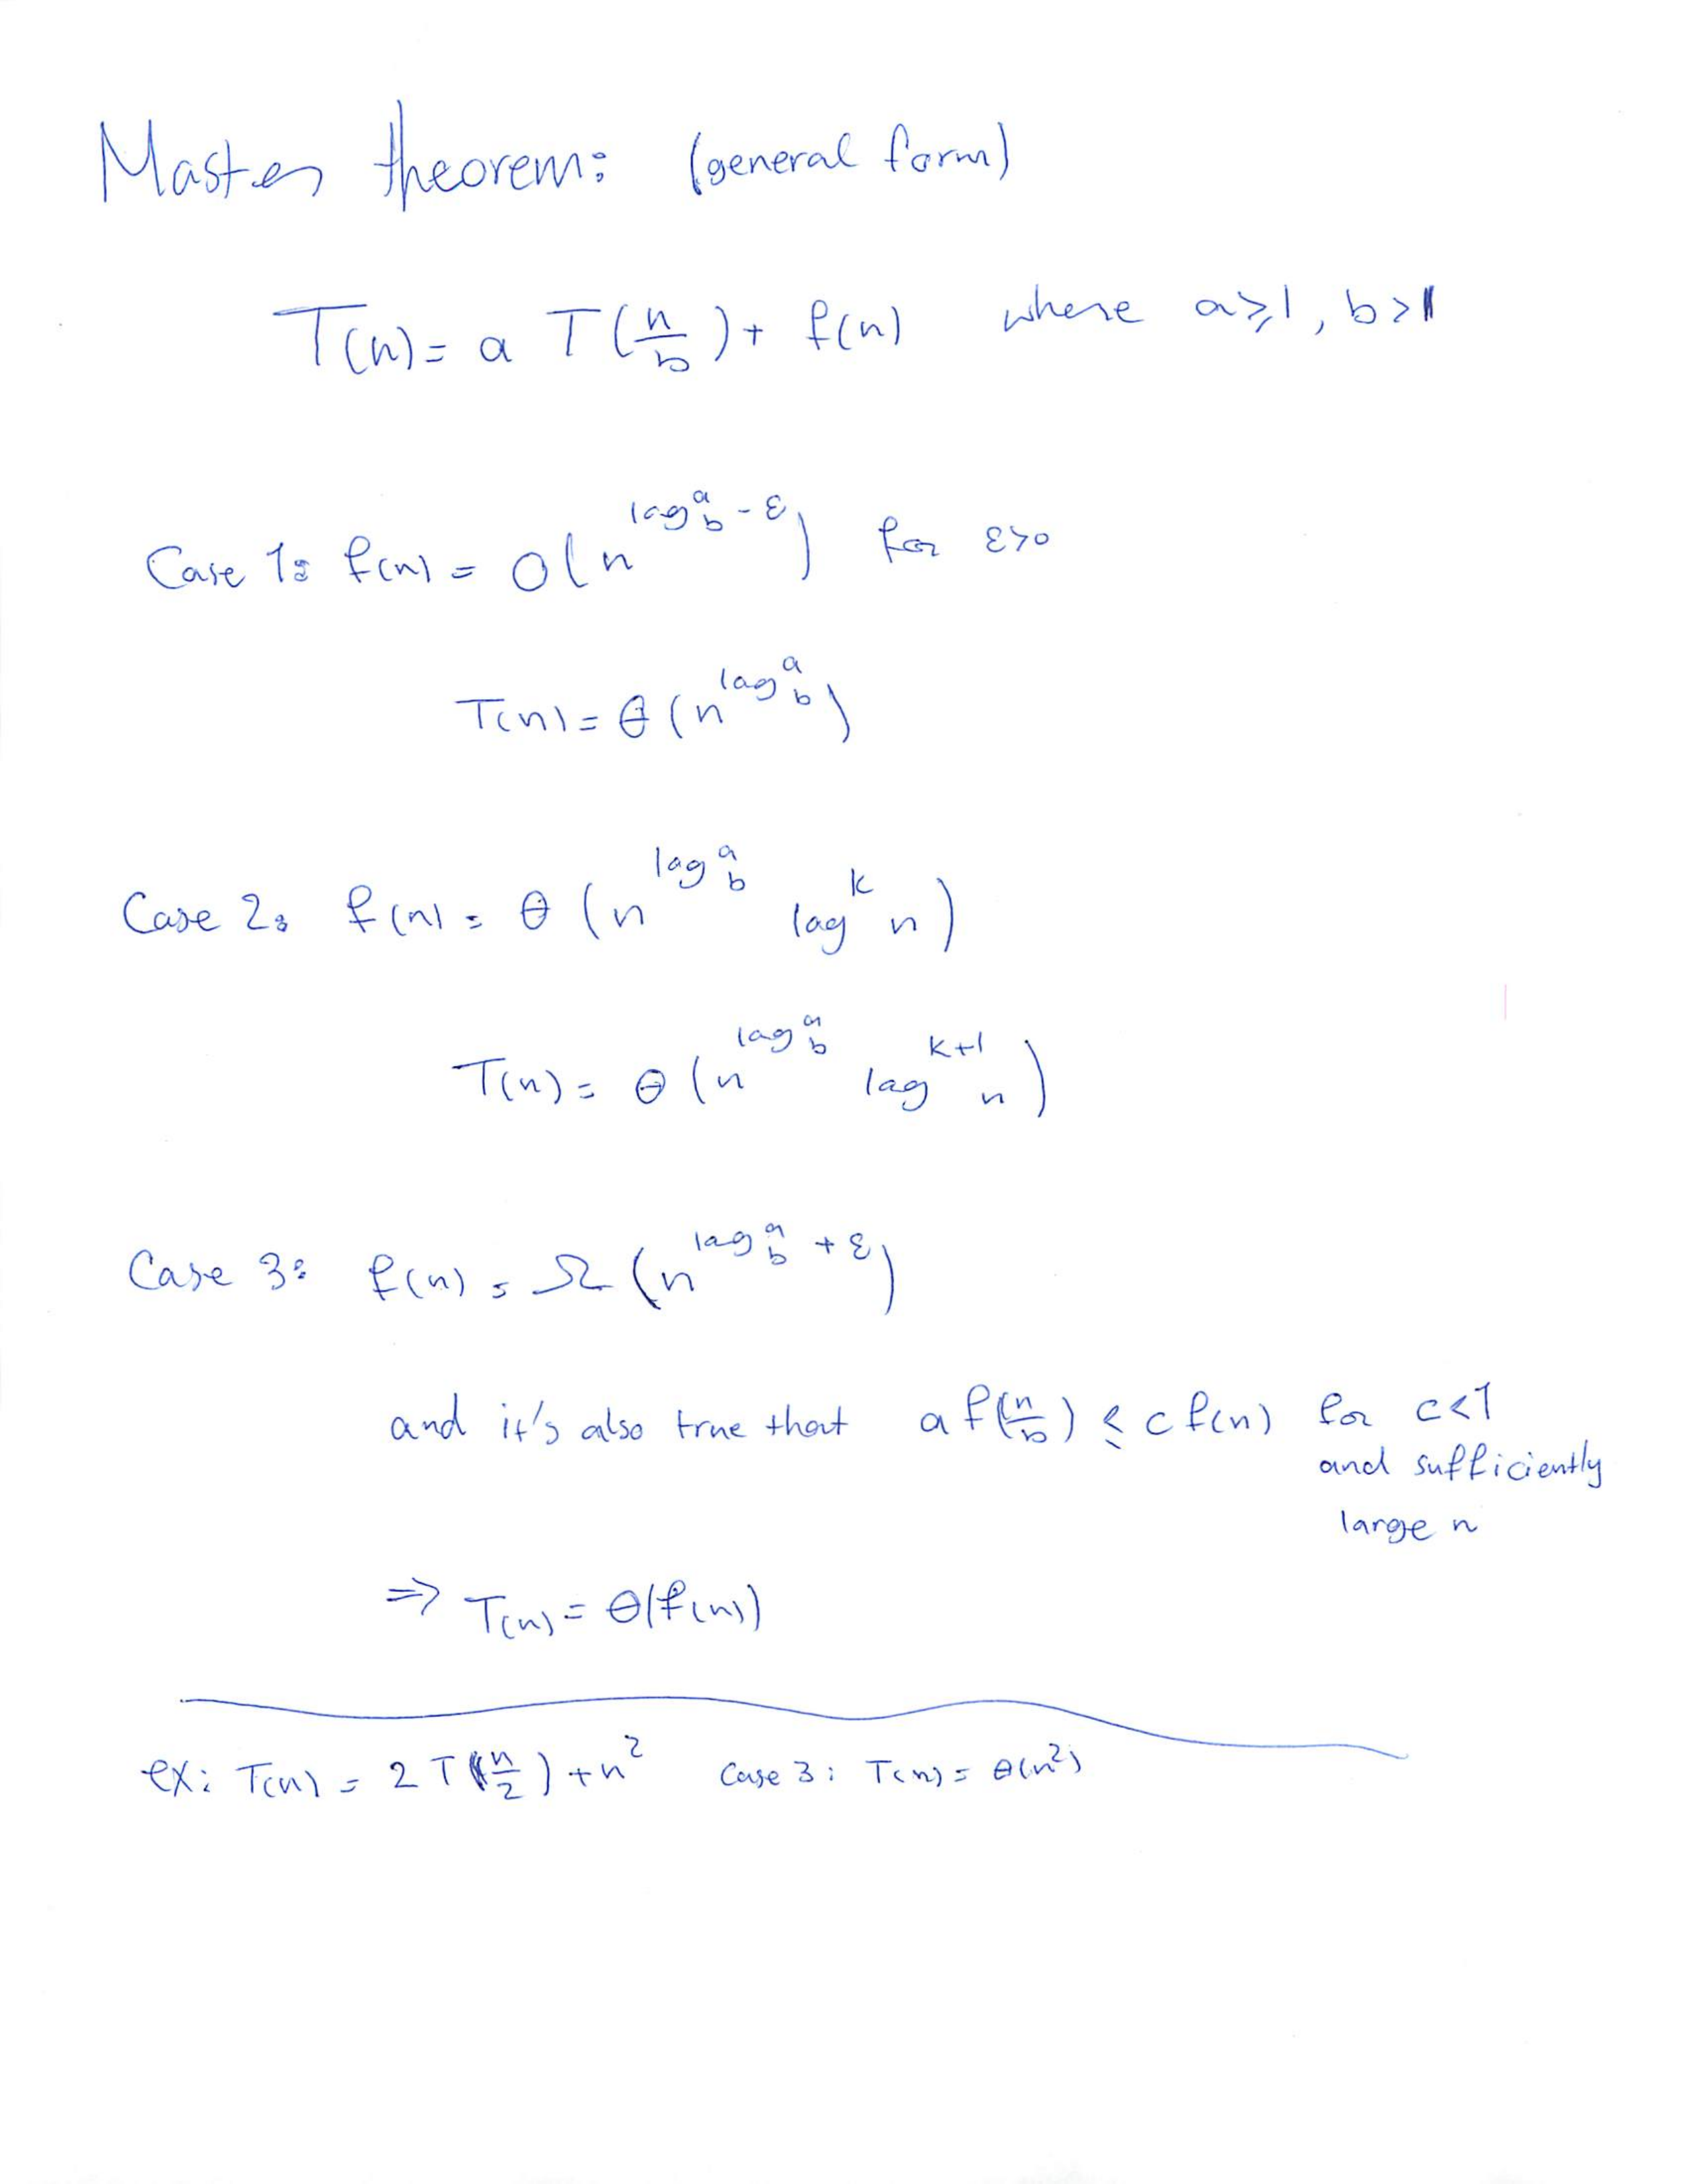 Master theorem: (general form)
T(n) = a T(n/b) + f(n) where a ≥ 1, b > 1
Case 1: f(n) = O(n^(log_b^a - ε)) for ε>0
T(n) = θ(n^(log_b^a))
Case 2: f(n) = θ(n^(log_b^a) log^k n)
T(n) = θ(n^(log_b^a) log^(k+1) n)
Case 3: f(n) = Ω(n^(log_b^a + ε))
and it's also true that a f(n/b) ≤ c f(n) for c<1
and sufficiently
large n
⇒ T(n) = θ(f(n))
ex: T(n) = 2 T(n/2) + n^2 Case 3: T(n) = θ(n^2)